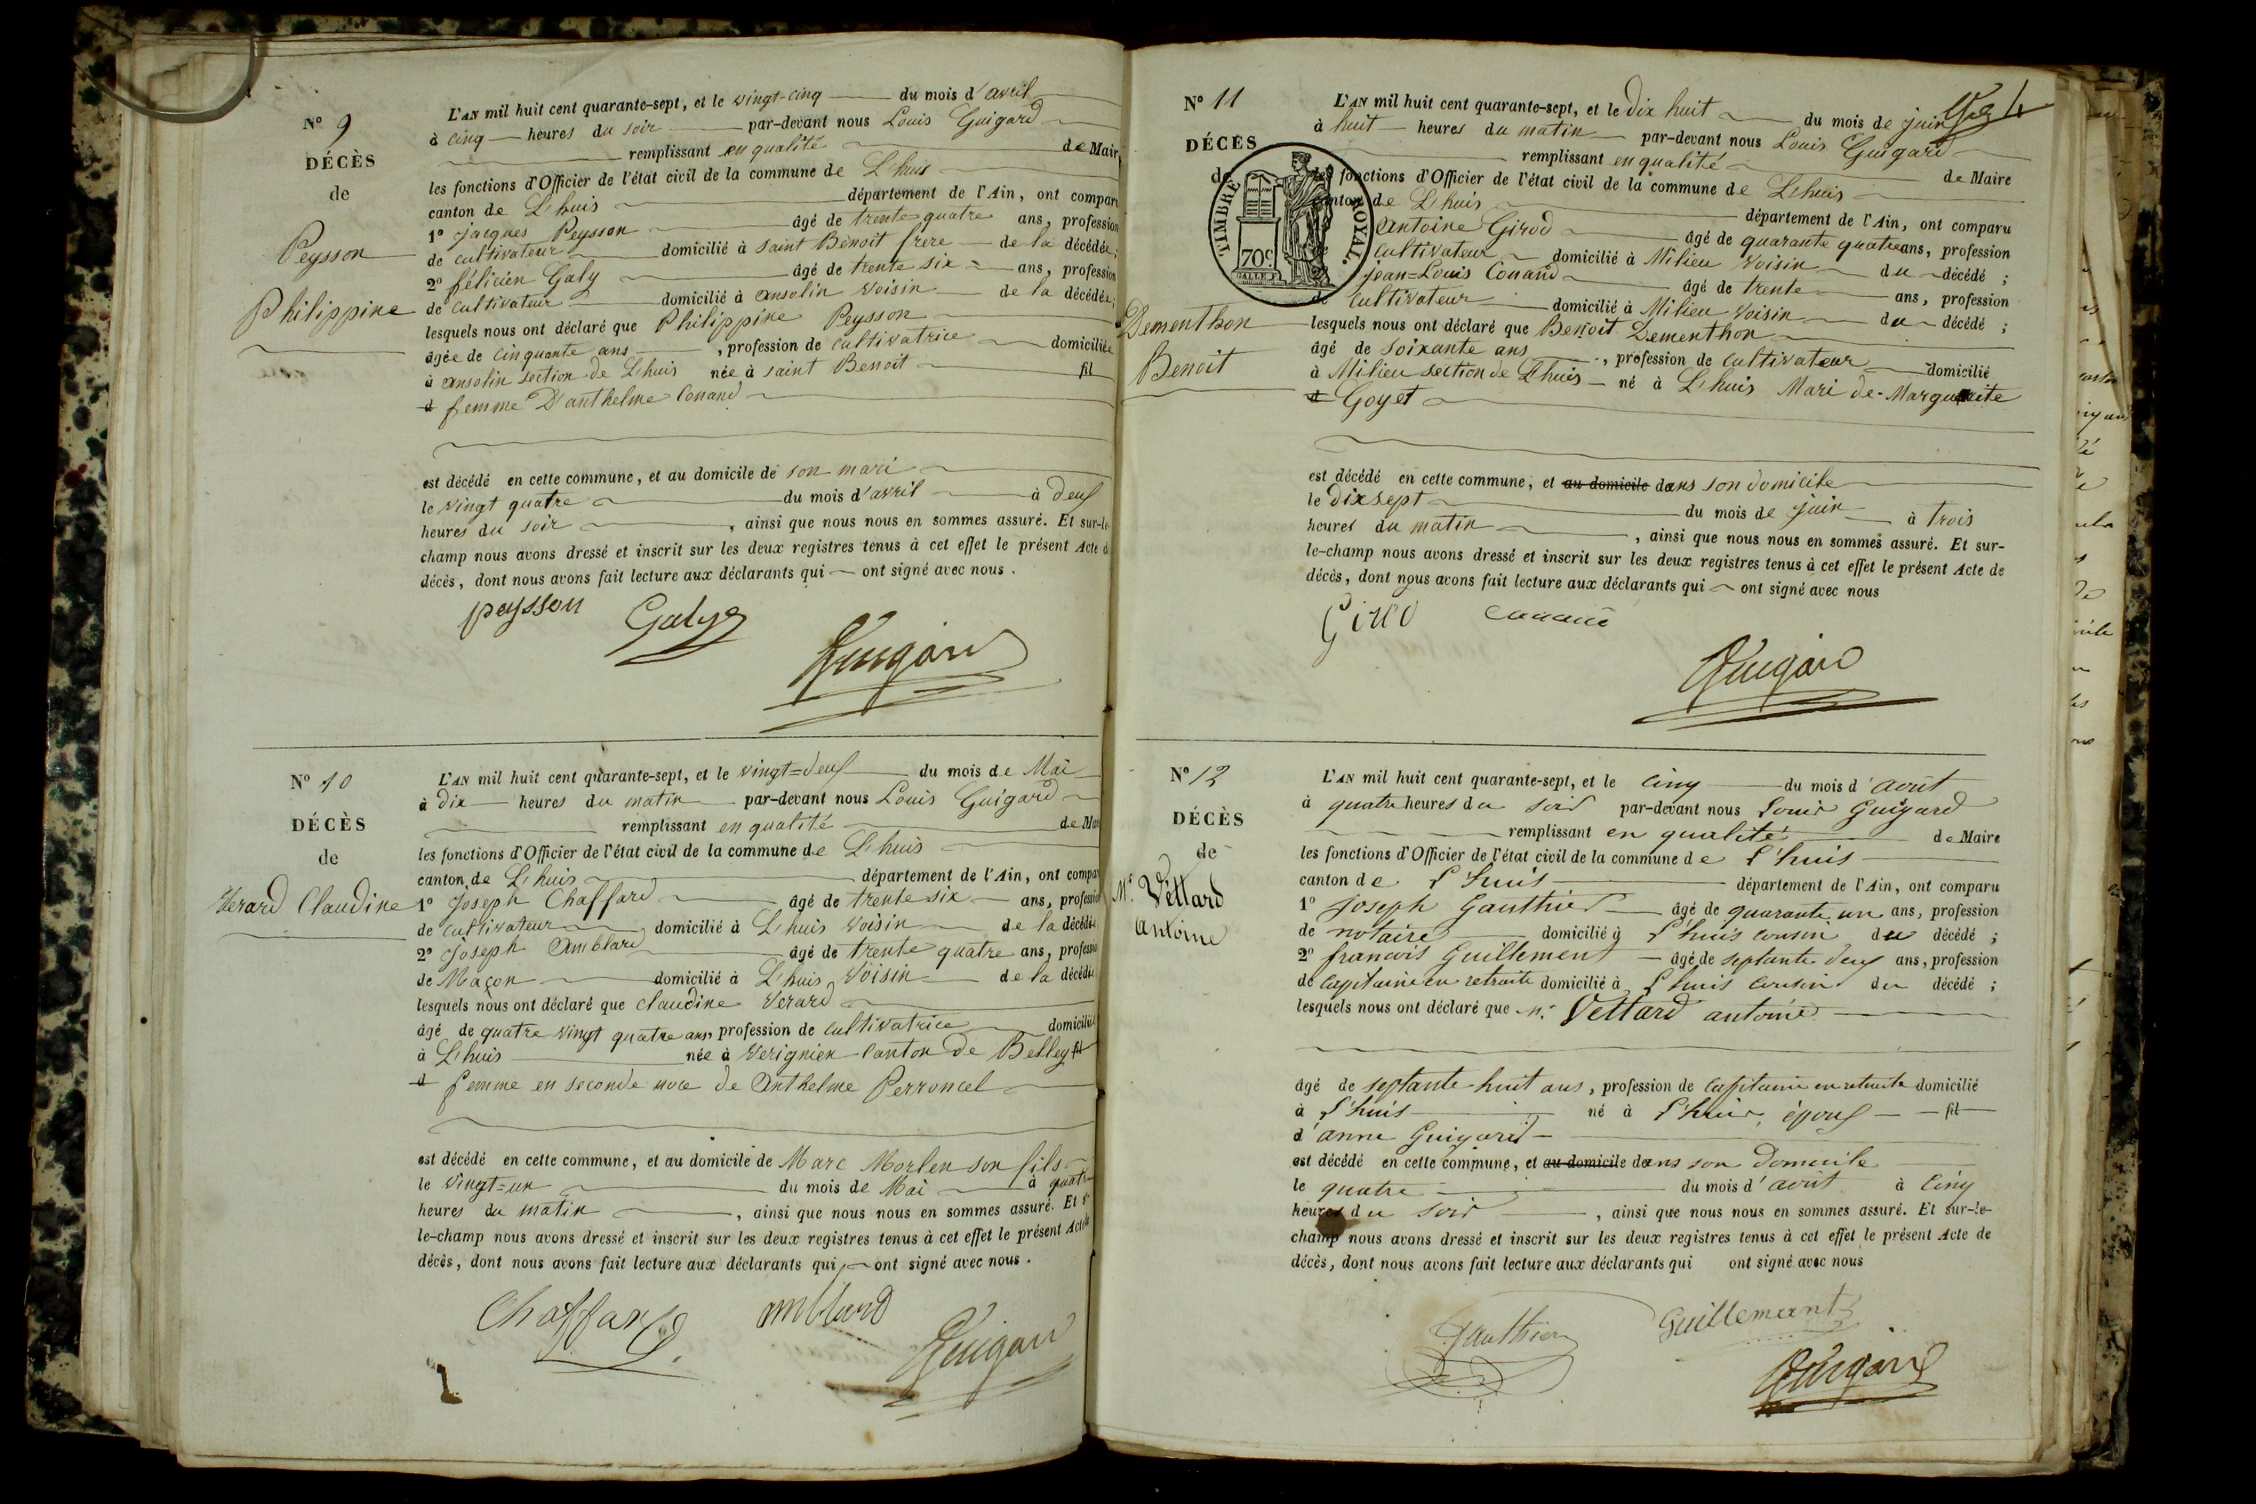 N° 9
DÉCÈS
de
Peysson
Philippine
L'AN mil huit cent quarante-sept, et le vingt-cinq du mois d'avril
à cinq heures du soir par-devant nous Louis Guigard
remplissant en qualité de Mair
les fonctions d'Officier de l'état civil de la commune de Lhuis
canton de Lhuis département de l'Ain, ont comparu
1° jacques Peysson âgé de trente quatre ans, profession
de cultivateur domicilié à saint Benoit frere de la décédée;
2° félicien Galy âgé de trente six ans, profession
de cultivateur domicilié à ansolin voisin de la décédée;
lesquels nous ont déclaré que Philippine Peysson
âgée de cinquante ans, profession de cultivatrice domiciliée
à ansolin section de Lhuis née à saint Benoit fil
d femme D'anthelme Conand
est décédé en cette commune, et au domicile de son mari
le vingt quatre du mois d'avril à deux
heures du soir, ainsi que nous nous en sommes assuré. Et sur-le-
champ nous avons dressé et inscrit sur les deux registres tenus à cet effet le présent Acte d
décès, dont nous avons fait lecture aux déclarants qui ont signé avec nous.
peysson Galy Guigard
N° 10
DÉCÈS
de
Verard Claudine
L'AN mil huit cent quarante-sept, et le vingt=deux du mois de Mai
à dix heures du matin par-devant nous Louis Guigard
remplissant en qualité de Mai
les fonctions d'Officier de l'état civil de la commune de Lhuis
canton de Lhuis département de l'Ain, ont compar
1° joseph Chaffard âgé de trente six ans, profession
de cultivateur domicilié à Lhuis voisin de la décédée
2° joseph Amblard âgé de trente quatre ans, profession
de Maçon domicilié à Lhuis Voisin de la décédée
lesquels nous ont déclaré que claudine Verard
âgé de quatre vingt quatre ans, profession de cultivatrice domicilié
à Lhuis née à Verignien Canton de Belley fil
d femme en seconde noce de Anthelme Perroncel
est décédé en cette commune, et au domicile de Marc Morlen son fils
le vingt=un du mois de Mai à quatre
heures du matin, ainsi que nous nous en sommes assuré. Et sur-
le-champ nous avons dressé et inscrit sur les deux registres tenus à cet effet le présent Acte de
décès, dont nous avons fait lecture aux déclarants qui ont signé avec nous.
Chaffard amblard Guigard
N° 11
DÉCÈS
de
Dementhon
Benoit
TIMBRE ROYAL.
70c
L'AN mil huit cent quarante-sept, et le dix huit du mois de juin
à huit heures du matin par-devant nous Louis Guigard
remplissant en qualité de Maire
les fonctions d'Officier de l'état civil de la commune de Lhuis
canton de Lhuis département de l'Ain, ont comparu
Antoine Girod âgé de quarante quatre ans, profession
cultivateur domicilié à Milieu voisin du décédé;
jean=Louis Conand âgé de trente ans, profession
de cultivateur domicilié à Milieu voisin du décédé;
lesquels nous ont déclaré que Benoit Dementhon
âgé de soixante ans, profession de cultivateur domicilié
à Milieu section de Lhuis né à Lhuis Mari de Marguerite
d Goyet
est décédé en cette commune, et au domicile dans son domicile
le dix sept du mois de juin à trois
heures du matin, ainsi que nous nous en sommes assuré. Et sur-
le-champ nous avons dressé et inscrit sur les deux registres tenus à cet effet le présent Acte de
décès, dont nous avons fait lecture aux déclarants qui ont signé avec nous
Girod conand
Guigard
N° 12
DÉCÈS
de
Mr. Vettard
antoine
L'AN mil huit cent quarante-sept, et le cinq du mois d'août
à quatre heures du soir par-devant nous Louis Guigard
remplissant en qualité de Maire
les fonctions d'Officier de l'état civil de la commune de L'huis
canton de L'huis département de l'Ain, ont comparu
1° joseph Gauthier âgé de quarante un ans, profession
de notaire domicilié à L'huis cousin du décédé;
2° francois Guillement âgé de septante deux ans, profession
de capitaine en retraite domicilié à L'huis cousin du décédé;
lesquels nous ont déclaré que Mr. Vettard antoine
âgé de septante huit ans, profession de capitaine en retraite domicilié
à L'huis né à L'huis, époux fil
d'anne Guigard
est décédé en cette commune, et au domicile dans son domicile
le quatre du mois d'août à cinq
heures du soir, ainsi que nous nous en sommes assuré. Et sur-le-
champ nous avons dressé et inscrit sur les deux registres tenus à cet effet le présent Acte de
décès, dont nous avons fait lecture aux déclarants qui ont signé avec nous
Gauthier Guillement
Guigard